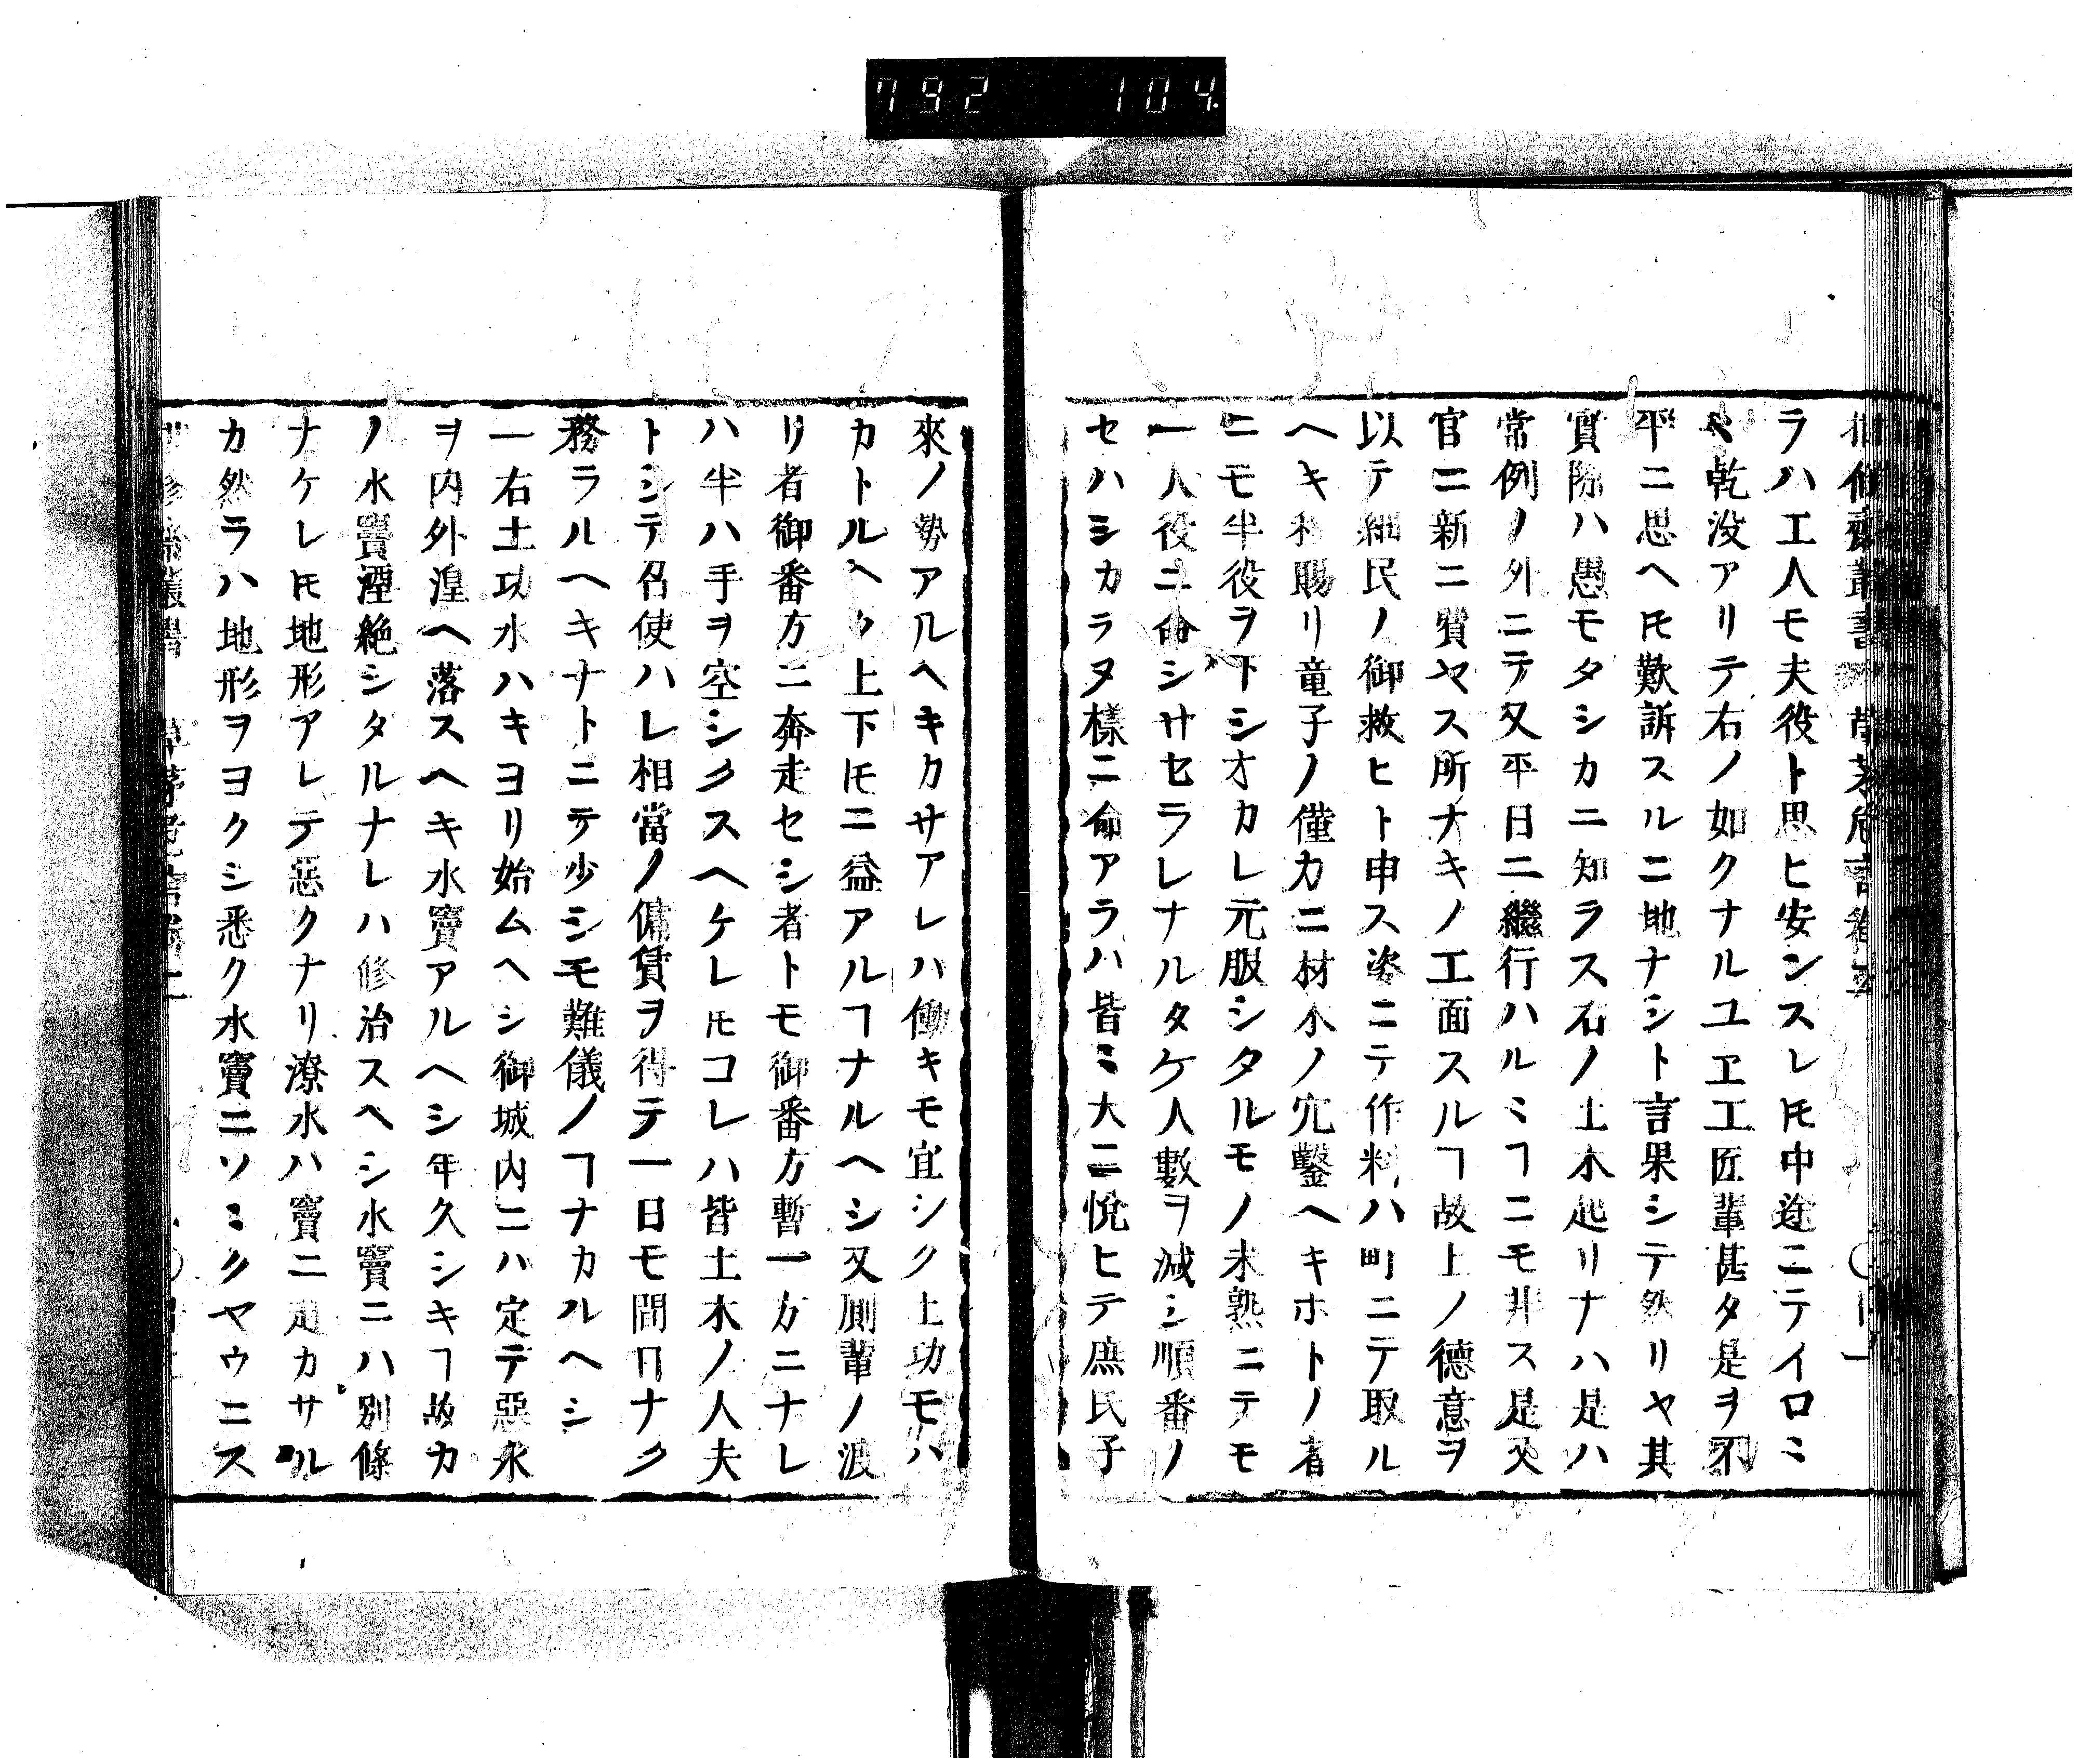 792 104
ラハ工人モ夫役ト思ヒ安ンスレ𪜈中途ニテイロミ
ミ乾没アリテ右ノ如クナルユヱ工匠輩甚タ是ヲ不
平ニ思ヘ𪜈歎訴スルニ地ナシト言果シテ然リヤ其
實際ハ愚モタシカニ知ラス若ノ土木起リナハ是ハ
常例ノ外ニテ又平日ニ繼行ハルミヿニモ非ス是又
官ニ新ニ費ヤス所ナキノ工面スルヿ故上ノ德意ヲ
以テ細民ノ御救ヒト申ス姿ニテ作料ハ町ニテ取ル
ヘキ程賜リ竜子ノ僅カニ材木ノ穴鑿ヘキホトノ者
ニモ半役ヲ下シオカレ元服シタルモノ未熟ニテモ
一人役ニ命シサセラレナルタケ人數ヲ減シ順番ノ
セハシカラヌ樣ニ命アラハ皆ミ大ニ悅ヒテ庶民子
來ノ勢アルヘキカサアレハ働キモ宜シク土功モハ
カトルヘク上下𪜈ニ益アルヿナルヘシ又厠輩ノ渡
リ者御番方ニ奔走セシ者トモ御番方暫一方ニナレ
ハ半ハ手ヲ空シクスヘケレ𪜈コレハ皆土木ノ人夫
トシテ召使ハレ相當ノ傭賃ヲ得テ一日モ間日ナク
務ラルヘキナトニテ少シモ難儀ノヿナカルヘシ
一右土功水ハキヨリ始ムヘシ御城内ニハ定テ惡水
ヲ内外湟ヘ落スヘキ水竇アルヘシ年久シキヿ故カ
ノ水竇湮絶シタルナレハ修治スヘシ水竇ニハ別條
ナケレ𪜈地形アレテ惡クナリ潦水ハ竇ニ趣カサル
カ然ラハ地形ヲヨクシ悉ク水竇ニソミクヤウニス